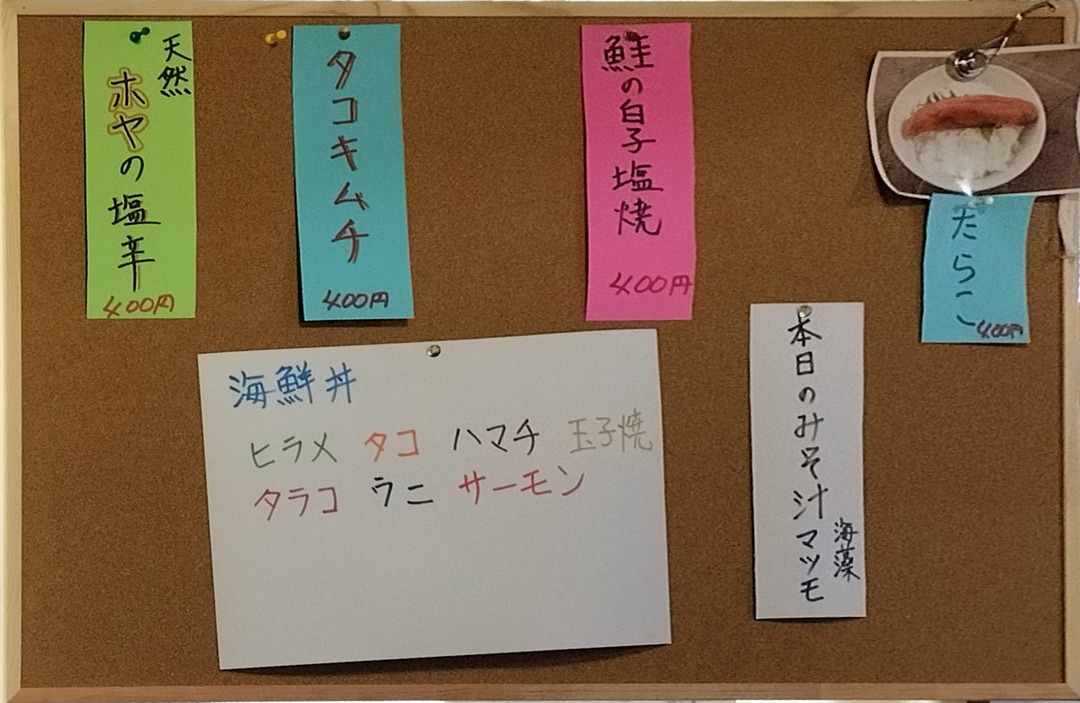 天然
ホヤの塩辛
400円
タコキムチ
400円
鮭の白子塩焼
400円
たらこ
400円
海鮮丼
ヒラメ タコ ハマチ 玉子焼
タラコ ウニ サーモン
本日のみそ汁マツモ
海藻